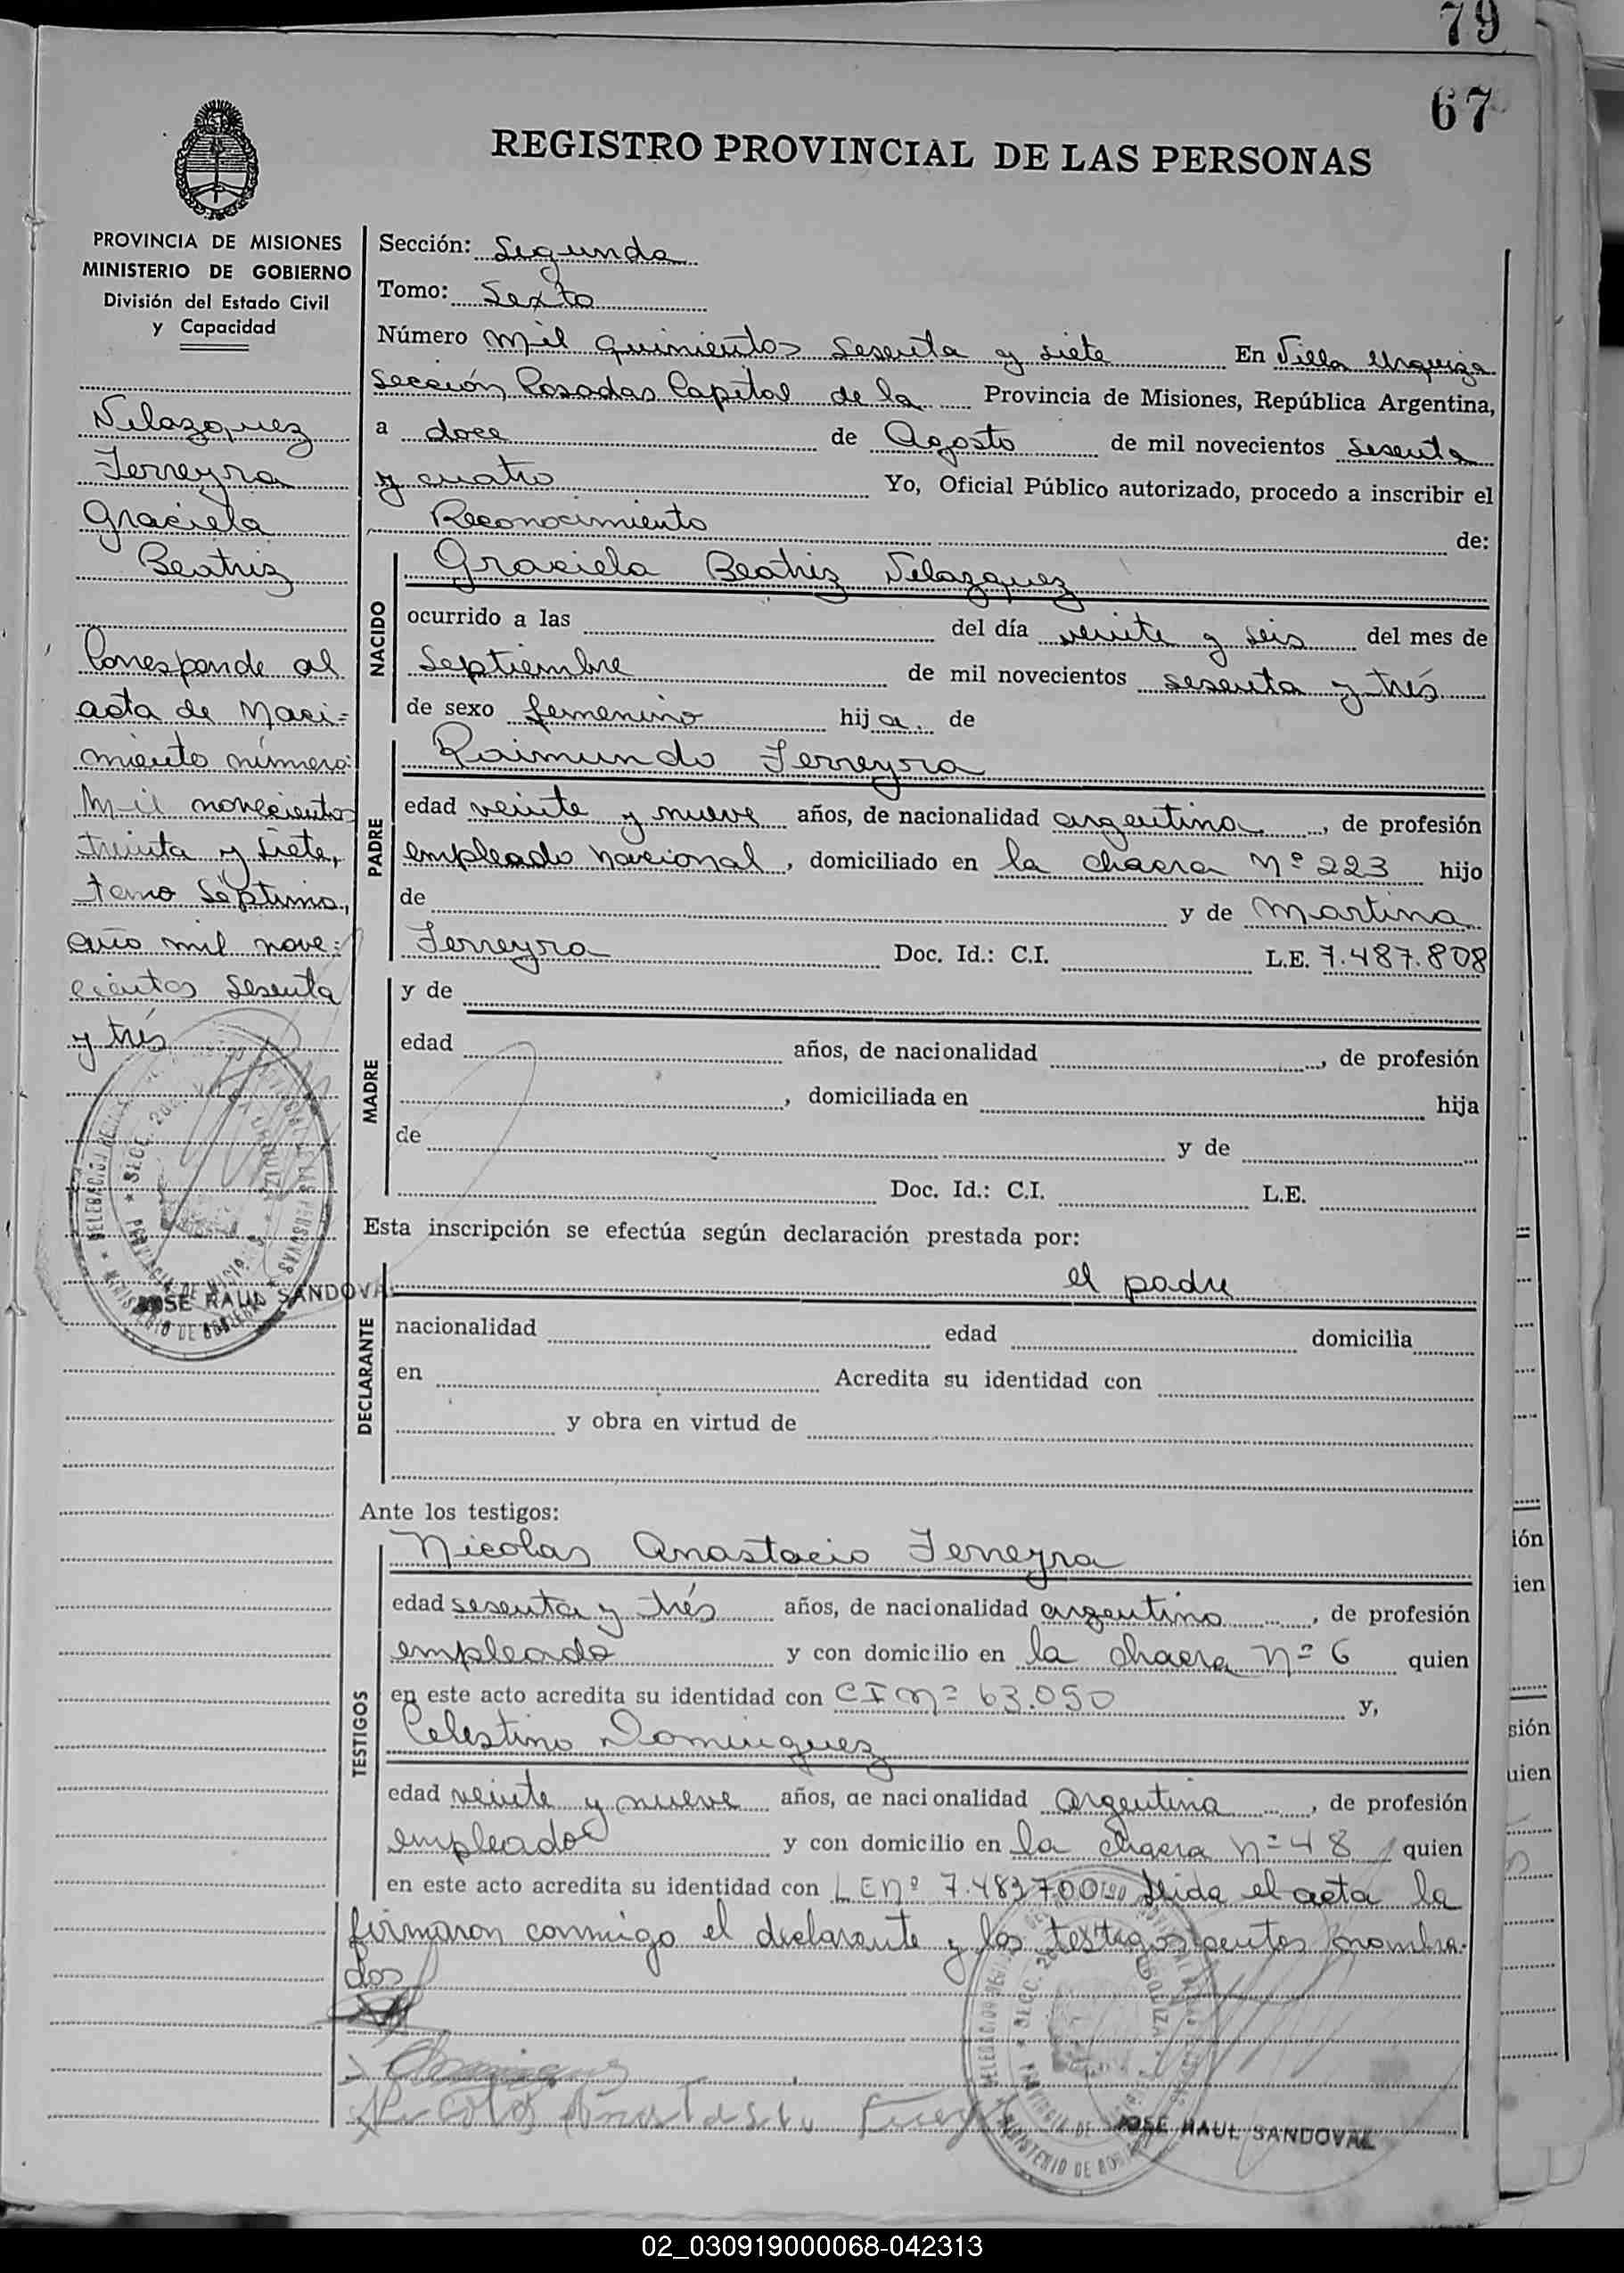 79
67
REGISTRO PROVINCIAL DE LAS PERSONAS
PROVINCIA DE MISIONES
MINISTERIO DE GOBIERNO
División del Estado Civil
y Capacidad
Velazquez
Ferreyra
Graciela
Beatriz
Corresponde al
acta de Naci=
miento número:
Mil novecientos
treinta y siete,
tomo Séptimo,
año mil nove=
cientos sesenta
y trés
JOSE RAUL SANDOVAL
Sección: Segunda
Tomo: Sexto
Número Mil quinientos sesenta y siete En Villa Urquiza
Sección Posadas Capital de la Provincia de Misiones, República Argentina,
a doce de Agosto de mil novecientos sesenta
y cuatro Yo, Oficial Público autorizado, procedo a inscribir el
Reconocimiento de:
NACIDO
Graciela Beatriz Velazquez
ocurrido a las del día veinte y seis del mes de
Septiembre de mil novecientos sesenta y trés
de sexo femenino hija de
PADRE
Raimundo Ferreyra
edad veinte y nueve años, de nacionalidad argentina, de profesión
empleado nacional, domiciliado en la chacra Nº 223 hijo
de y de Martina
Ferreyra Doc. Id.: C.I. L.E. 7.487.808
MADRE
y de
edad años, de nacionalidad , de profesión
, domiciliada en hija
de y de
Doc. Id.: C.I. L.E.
Esta inscripción se efectúa según declaración prestada por:
DECLARANTE
el padre
nacionalidad edad domicilia
en Acredita su identidad con
y obra en virtud de
Ante los testigos:
TESTIGOS
Nicolas Anastacio Ferreyra
edad sesenta y trés años, de nacionalidad argentino, de profesión
empleado y con domicilio en la chacra Nº 6 quien
en este acto acredita su identidad con CI Nº 63.050 y,
Celestino Dominguez
edad veinte y nueve años, de nacionalidad Argentina, de profesión
empleado y con domicilio en la chacra Nº 48 quien
en este acto acredita su identidad con LE Nº Leida el acta la
firmaron conmigo el declarante y los testigos nombra-
dos
JOSE RAUL SANDOVAL
02_030919000068-042313